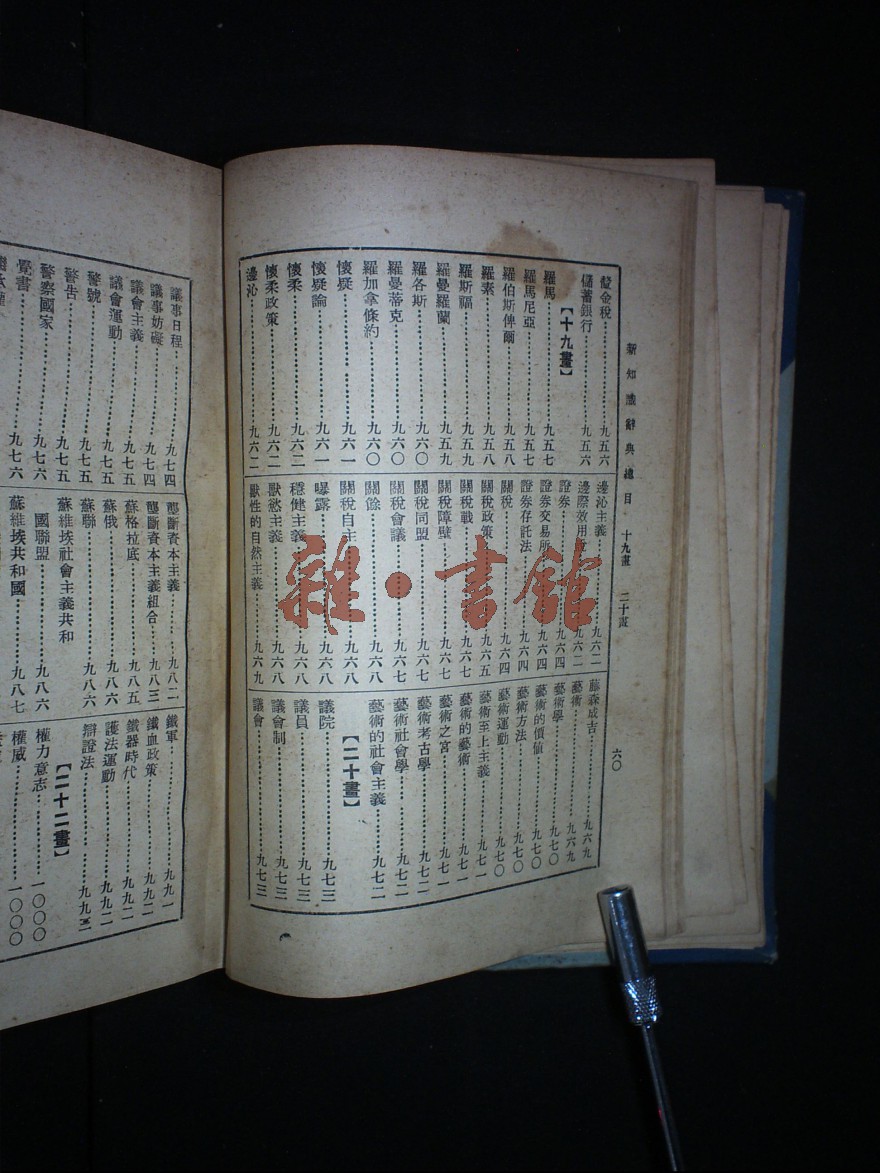 新知識辭典總目 十九畫 二十畫 六〇
釐金稅 九五六
儲蓄銀行 九五六
【十九畫】
羅馬 九五七
羅馬尼亞 九五七
羅伯斯俾爾 九五八
羅素 九五八
羅斯福 九五九
羅曼羅蘭 九五九
羅各斯 九六〇
羅曼蒂克 九六〇
羅加拿條約 九六〇
懷疑 九六一
懷疑論 九六一
懷柔 九六二
懷柔政策 九六二
邊沁 九六二
邊沁主義 九六二
邊際效用 九六二
證券 九六四
證券交易所 九六四
證券存託法 九六四
關稅 九六四
關稅政策 九六五
關稅戰 九六六
關稅障壁 九六六
關稅同盟 九六七
關稅會議 九六七
關餘 九六八
關稅自主 九六八
曝露 九六八
穩健主義 九六八
獸慾主義 九六八
獸性的自然主義 九六九
藤森成吉 九六九
藝術 九六九
藝術學 九七〇
藝術的價値 九七〇
藝術方法 九七〇
藝術運動 九七〇
藝術至上主義 九七一
藝術的藝術 九七一
藝術之宮 九七一
藝術考古學 九七二
藝術社會學 九七二
藝術的社會主義 九七二
【二十畫】
議院 九七三
議員 九七三
議會制 九七三
議會 九七三
議事日程 九七四
議事妨礙 九七四
議會主義 九七五
議會運動 九七五
警號 九七五
警告 九七五
警察國家 九七六
覺書 九七六
壟斷資本主義 九八二
壟斷資本主義組合 九八三
蘇格拉底 九八五
蘇俄 九八六
蘇聯 九八六
蘇維埃社會主義共和
國聯盟 九八六
蘇維埃共和國 九八七
鐵軍 九九一
鐵血政策 九九二
鐵器時代 九九二
護法運動 九九二
辯證法 九九三
【二十二畫】
權力意志 一〇〇〇
權威 一〇〇〇
雜·書館